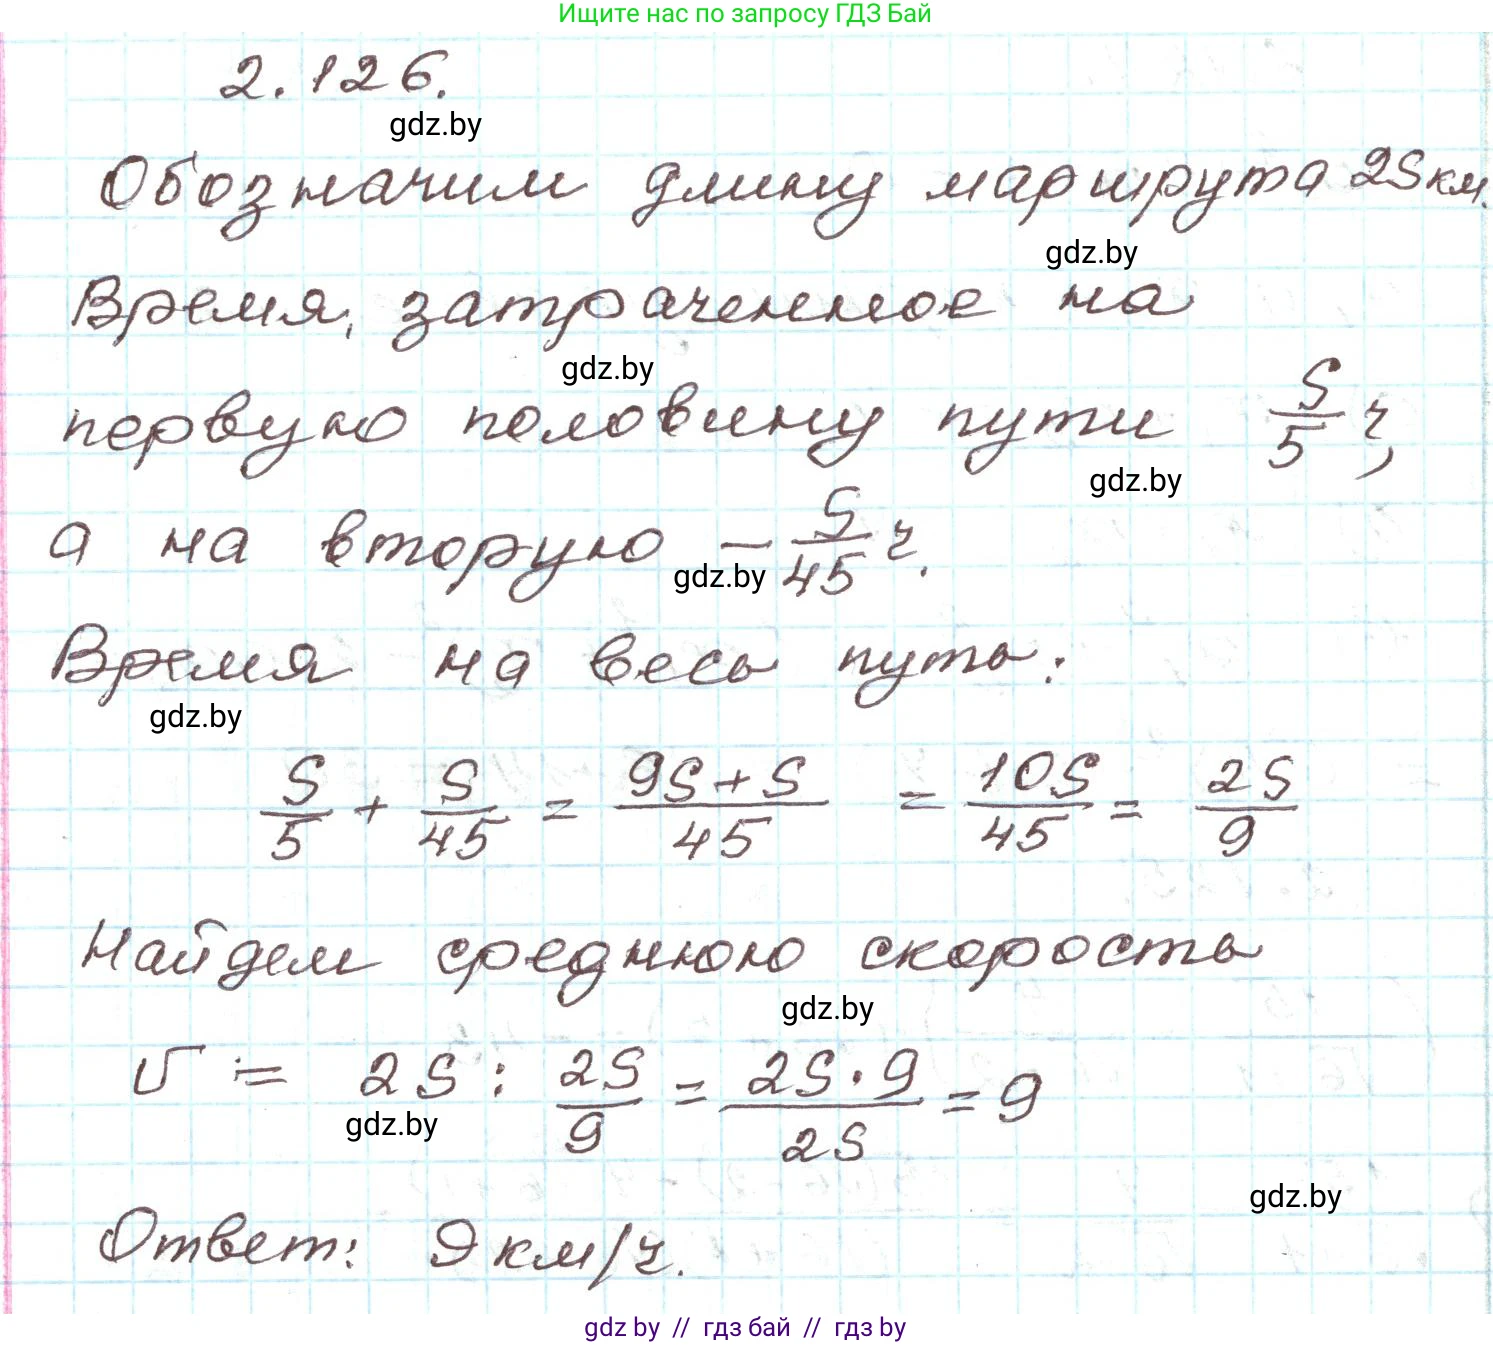 Ищите нас по запросу ГДЗ Бай
2.126.
gdz.by
Обозначим длину маршрута 2S км.
gdz.by
Время, затраченное на
gdz.by
первую половину пути S/5 ч,
gdz.by
а на вторую – S/45 ч.
gdz.by
Время на весь путь:
gdz.by
S/5 + S/45 = (9S+S)/45 = 10S/45 = 2S/9
Найдем среднюю скорость
gdz.by
v = 2S : 2S/9 = (2S·9)/2S = 9
gdz.by
gdz.by
Ответ: 9 км/ч.
gdz by // гдз бай // гдз by